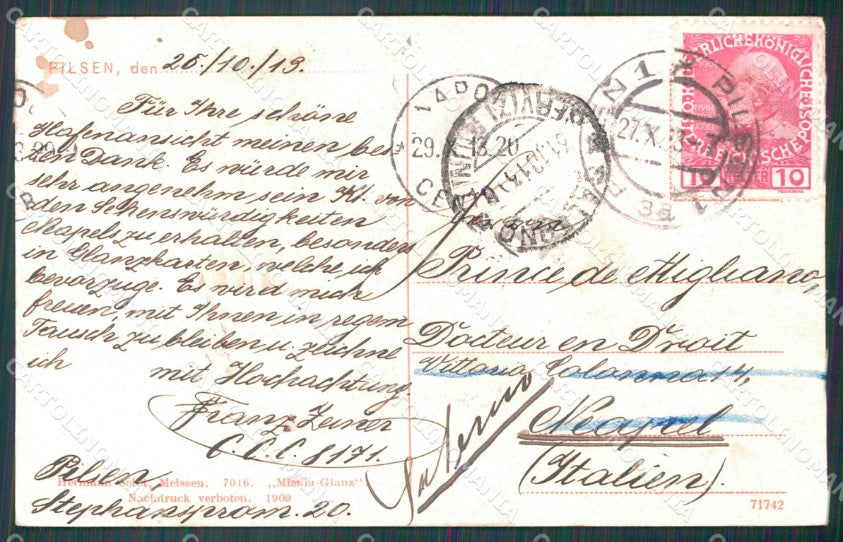 PILSEN, den 26./10./13.
Für Ihre schöne
Hafenansicht meinen bes-
ten Dank. Es würde mir
sehr angenehm sein, Kt. von
den Sehenswürdigkeiten
Neapels zu erhalten, besonders
in Glanzkarten, welche ich
bevorzuge. Es wird mich
freuen, mit Ihnen in regem
Tausch zu bleiben u. zeichne
ich
mit Hochachtung
Franz Zeiner
C.C.C. 8171.
Pilsen,
Stephansprom. 20.
Hermann Seibt, Meissen. 7016. „Mimila-Glanz“
Nachdruck verboten. 1909
29.X.13.20
27.X.13
PILSEN 1
10 HELLER 10
Prince de Migliano,
Docteur en Droit
Vittoria Colonna 14,
Neapel
(Italien).
Salerno
71742
CARTOLINOMANIA